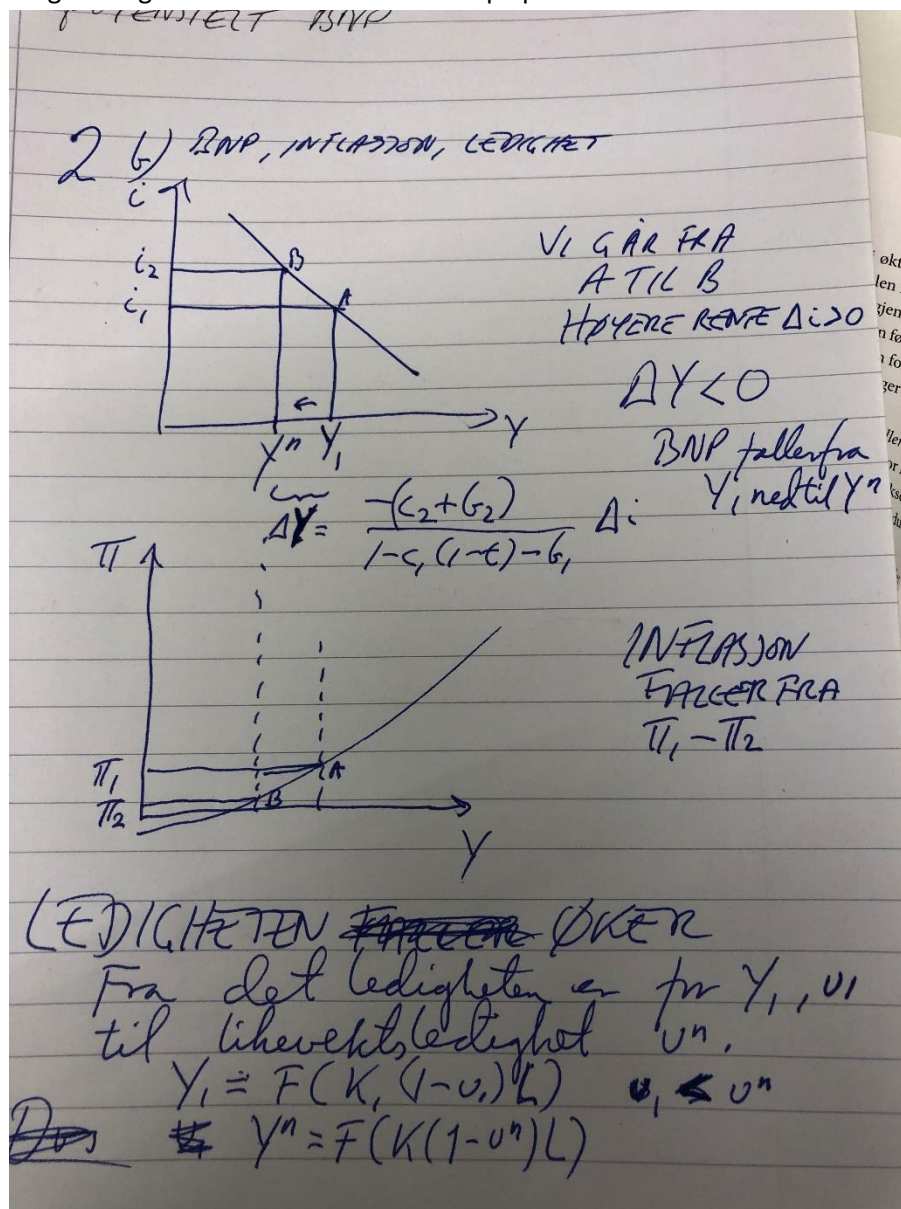 POTENSIELT BNP
2 b) BNP, INFLASJON, LEDIGHET
i
i₂
B
i₁
A
Yⁿ Y₁
Y
VI GÅR FRA
A TIL B
HØYERE RENTE Δi>0
ΔY<0
BNP faller fra
Y₁ ned til Yⁿ
ΔY = -(c₂+b₂) / 1-c₁(1-t)-b₁ Δi
π
π₁
A
π₂
B
Y
INFLASJON
FALLER FRA
π₁ - π₂
LEDIGHETEN FALLER ØKER
Fra det ledigheten er for Y₁, u₁
til likevektsledighet uⁿ.
Y₁ = F(K, (1-u₁)L) u₁ < uⁿ
Yⁿ = F(K(1-uⁿ)L)
økt
len
gjen
n fø
n fo
ger